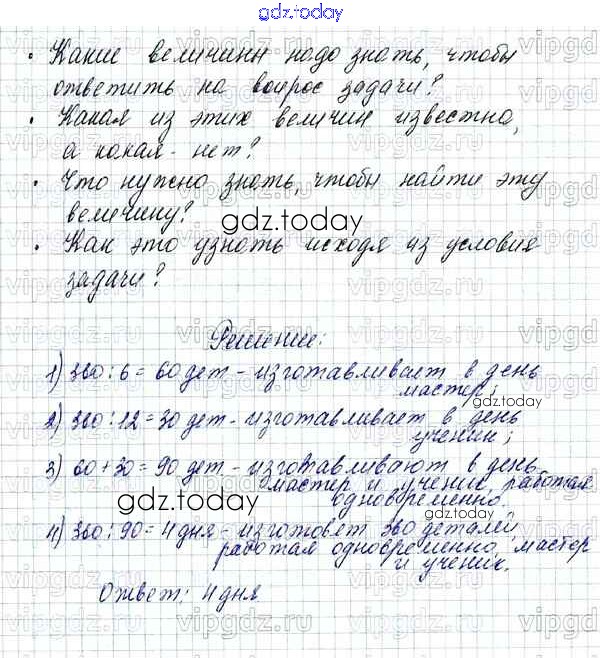 gdz.today
• Какие величины надо знать, чтобы
ответить на вопрос задачи?
• Какая из этих величин известна,
а какая - нет?
• Что нужно знать, чтобы найти эту
величину?
gdz.today
• Как это узнать исходя из условия
задачи?
Решение:
1) 360 : 6 = 60 дет - изготавливает в день
мастер;
gdz.today
2) 360 : 12 = 30 дет - изготавливает в день
ученик;
3) 60 + 30 = 90 дет - изготавливают в день
мастер и ученик, работая
одновременно.
gdz.today
4) 360 : 90 = 4 дня - изготовят 360 деталей,
работая одновременно, мастер
и ученик.
Ответ: 4 дня
vipgdz.ru